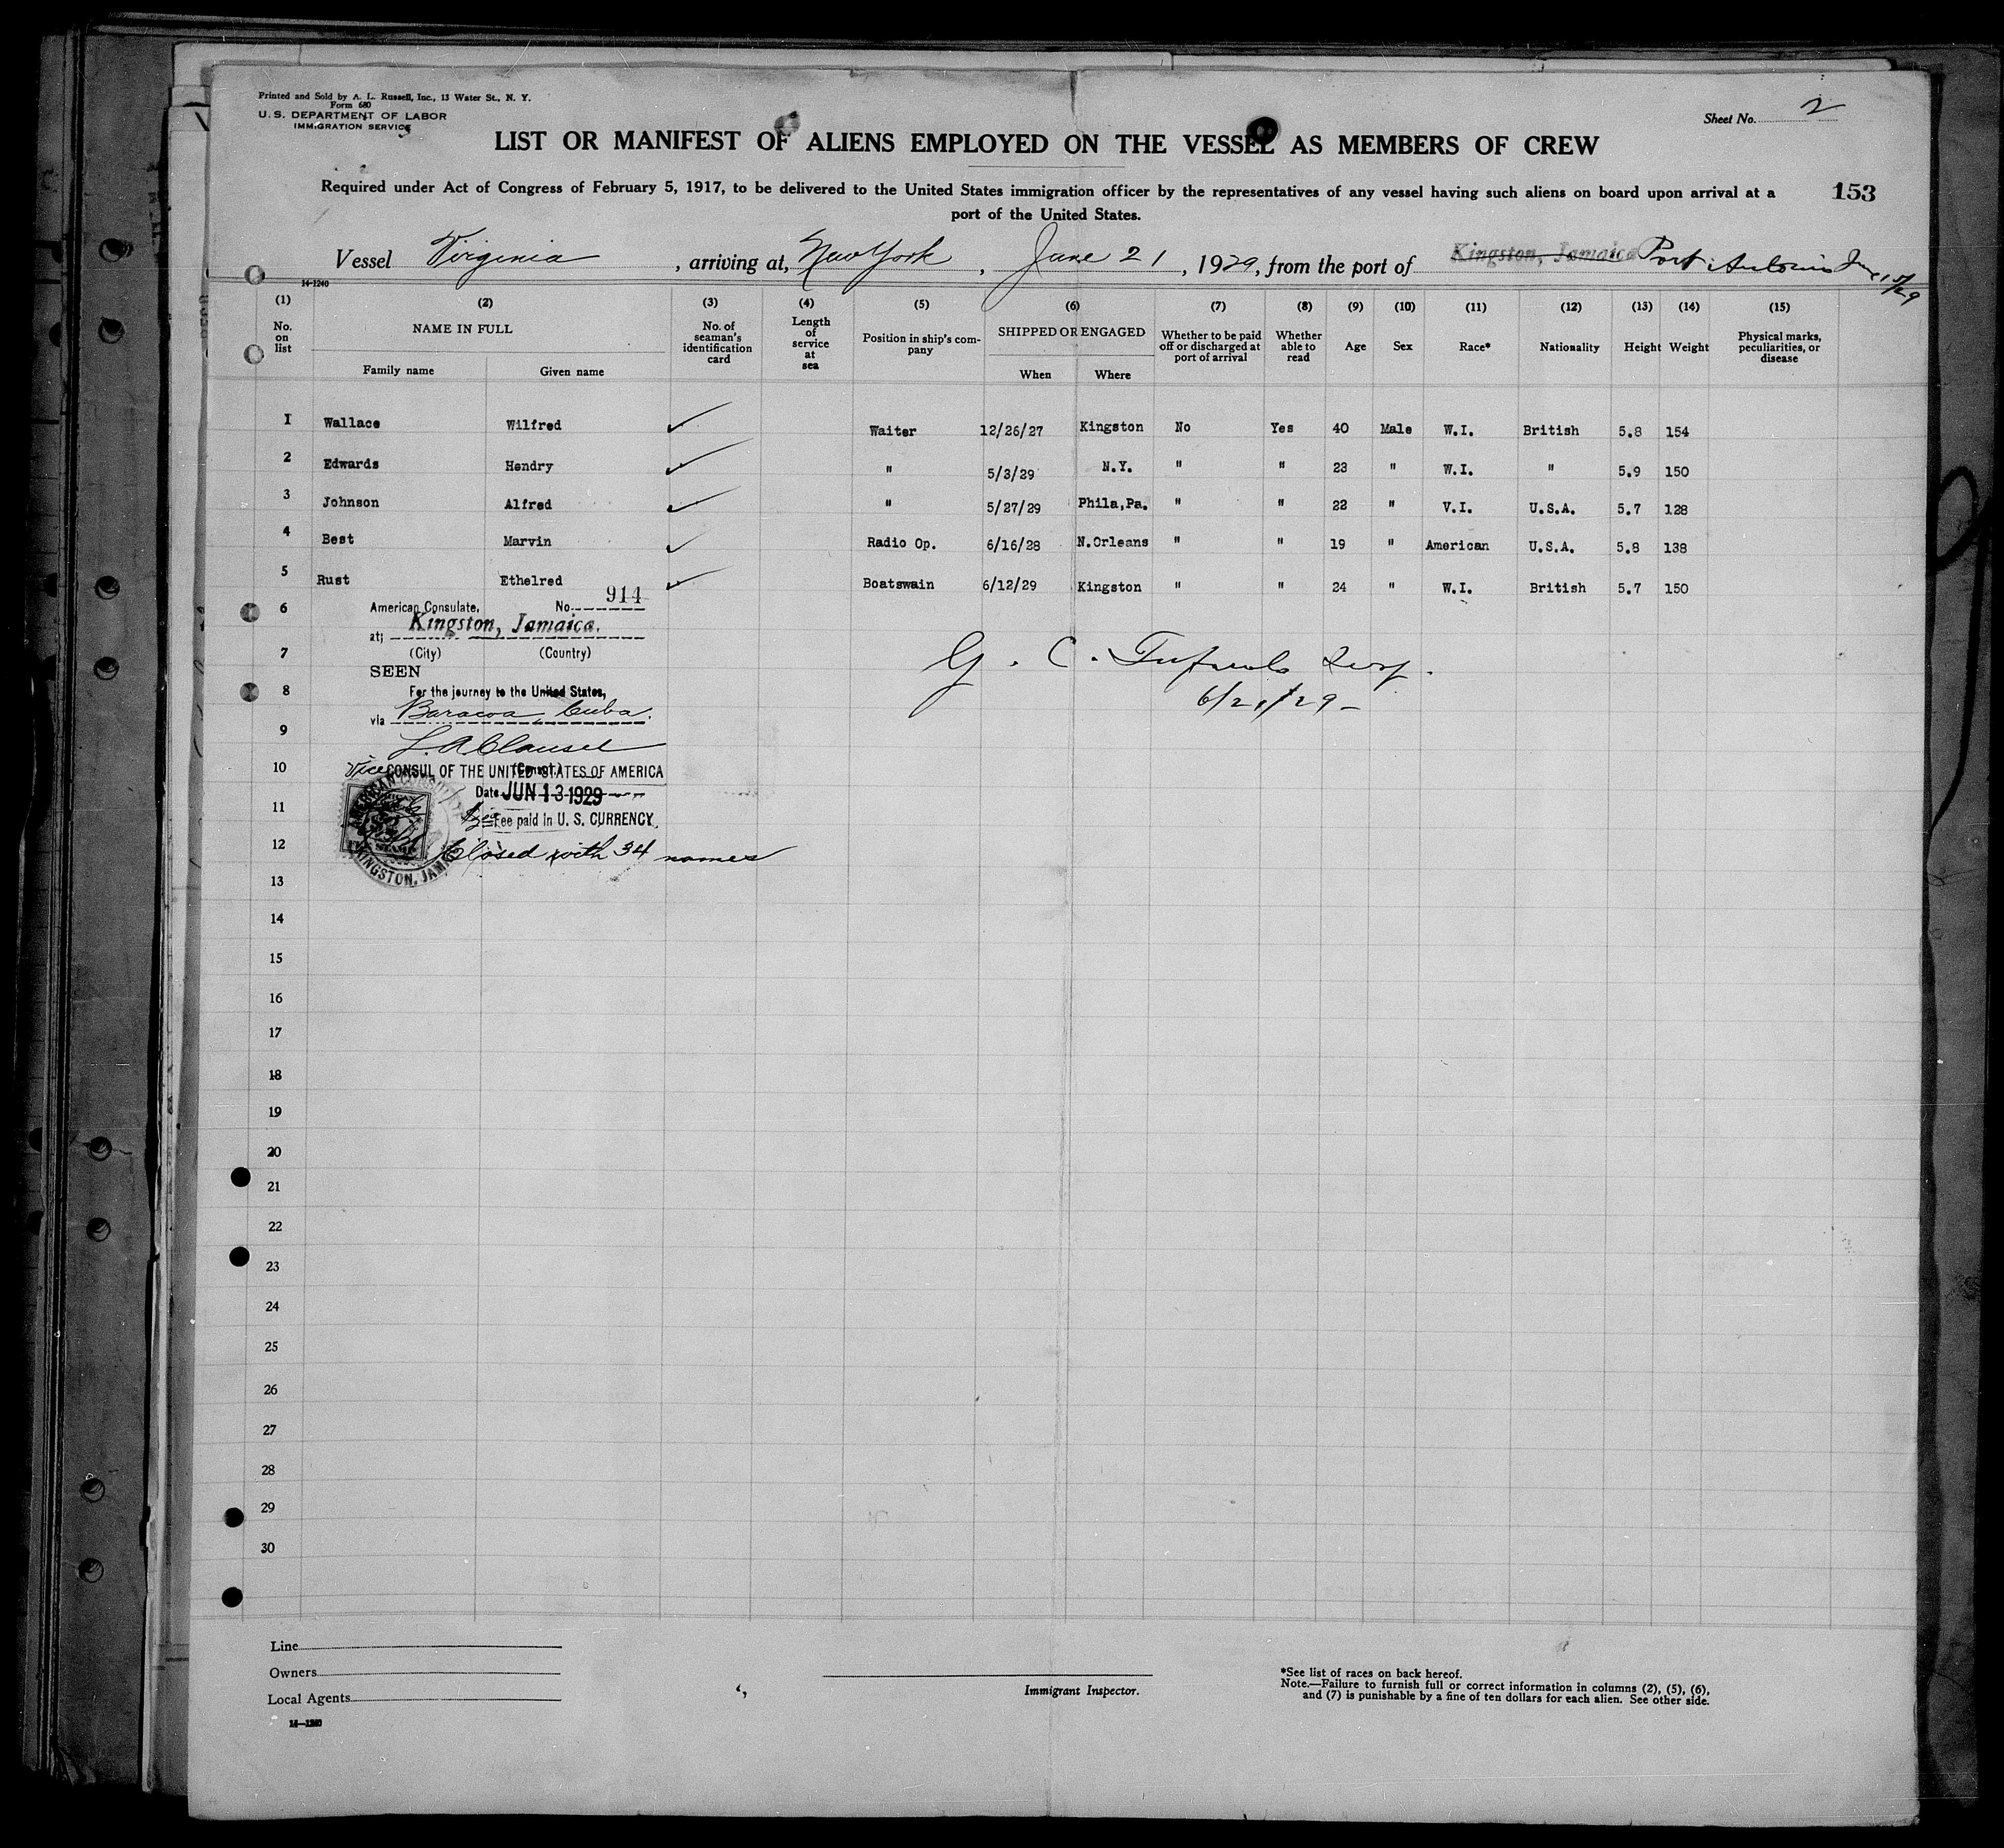 Printed and Sold by A. L. Russell, Inc., 13 Water St., N. Y.
Form 680
U. S. DEPARTMENT OF LABOR
IMMIGRATION SERVICE
Sheet No. 2
LIST OR MANIFEST OF ALIENS EMPLOYED ON THE VESSEL AS MEMBERS OF CREW
Required under Act of Congress of February 5, 1917, to be delivered to the United States immigration officer by the representatives of any vessel having such aliens on board upon arrival at a
port of the United States.
153
Vessel Virginia, arriving at, New York, June 21, 1929, from the port of Kingston, Jamaica Port Antonio June 15/29
14-1240
(1) (2) (3) (4) (5) (6) (7) (8) (9) (10) (11) (12) (13) (14) (15)
No. on list NAME IN FULL No. of seaman's identification card Length of service at sea Position in ship's company SHIPPED OR ENGAGED Whether to be paid off or discharged at port of arrival Whether able to read Age Sex Race* Nationality Height Weight Physical marks, peculiarities, or disease
Family name Given name When Where
1 Wallace Wilfred Waiter 12/26/27 Kingston No Yes 40 Male W.I. British 5.8 154
2 Edwards Hendry " 5/3/29 N.Y. " " 23 " W.I. " 5.9 150
3 Johnson Alfred " 5/27/29 Phila,Pa. " " 22 " V.I. U.S.A. 5.7 128
4 Best Marvin Radio Op. 6/16/28 N.Orleans " " 19 " American U.S.A. 5.8 138
5 Rust Ethelred Boatswain 6/12/29 Kingston " " 24 " W.I. British 5.7 150
6 American Consulate, No. 914
at; Kingston, Jamaica.
7 (City) (Country)
SEEN
G. C.
8 For the journey to the United States,
6/21/29
via Baracoa, Cuba.
9
10 Vice CONSUL OF THE UNITED STATES OF AMERICA
(Consul)
Date JUN 13 1929
11 Fee paid in U. S. CURRENCY
12 Closed with 34 names
KINGSTON, JAMAICA
13
14
15
16
17
18
19
20
21
22
23
24
25
26
27
28
29
30
Line
Owners
Local Agents
14-1240
Immigrant Inspector.
*See list of races on back hereof.
Note.—Failure to furnish full or correct information in columns (2), (5), (6),
and (7) is punishable by a fine of ten dollars for each alien. See other side.